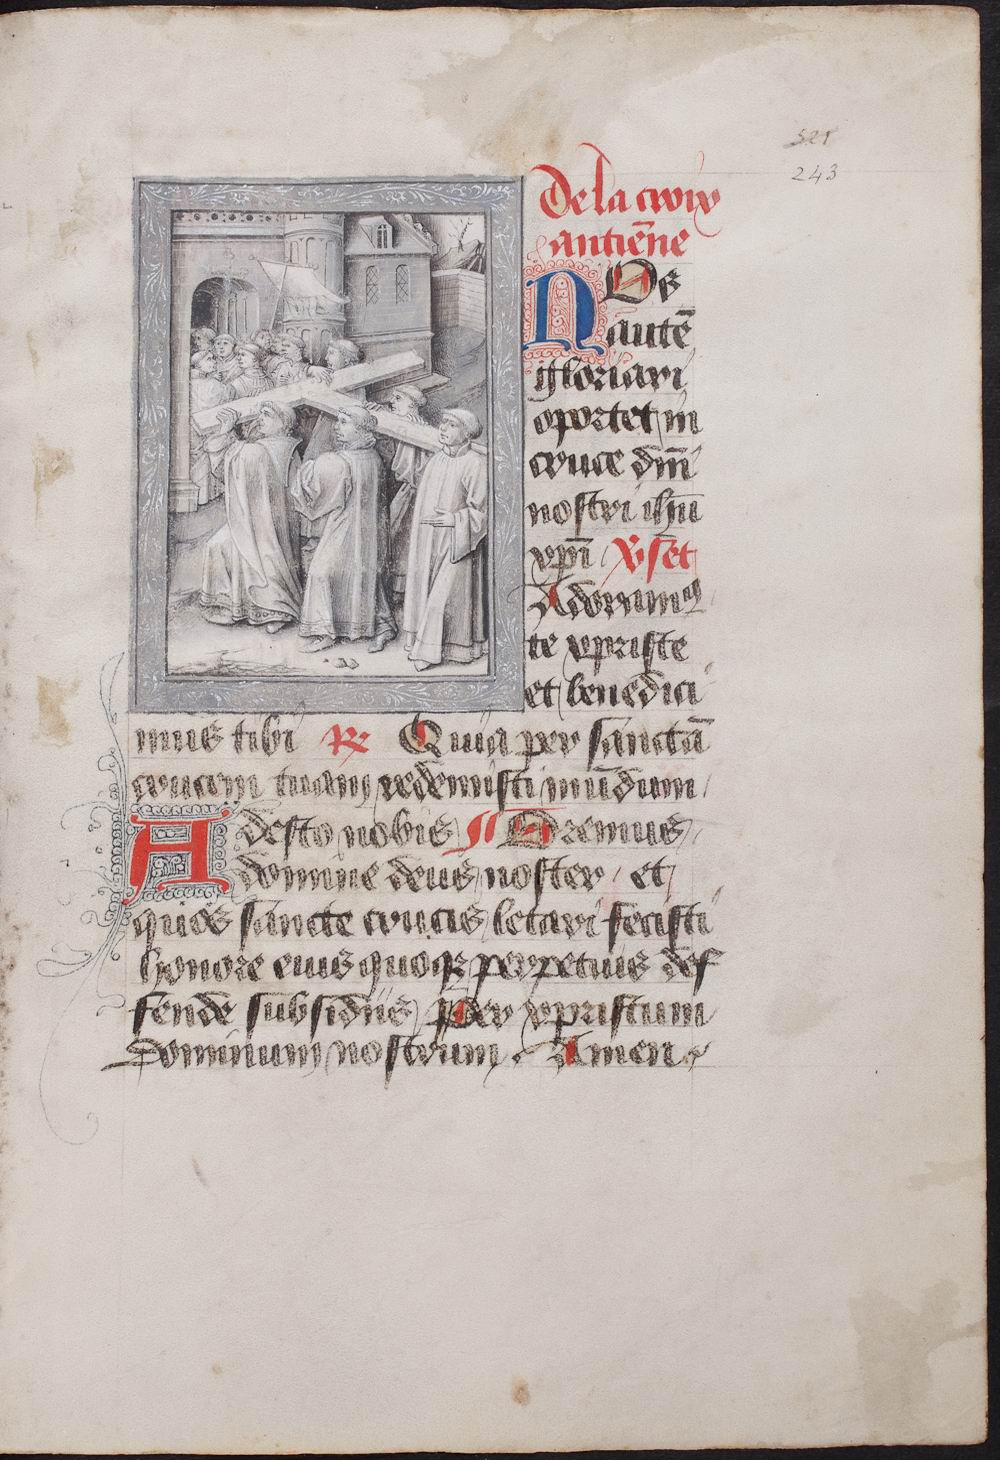 521
243
De la croix
antiēne
NOs
autē
gloriari
oportet in
cruce dm̄
nostri ihū
xpi V̄set
Adoramꝰ
te xpriste
et benedici
mus tibi R̷ Quia per sanctā
crucem tuam redemisti mūdum
Adesto nobis ¶ Oremus
domine deus noster et
quos sancte crucis letari fecisti
honore eius quoqꝫ perpetuis def
fende subsidiis Per xpristum
Dominum nostrum. Amen